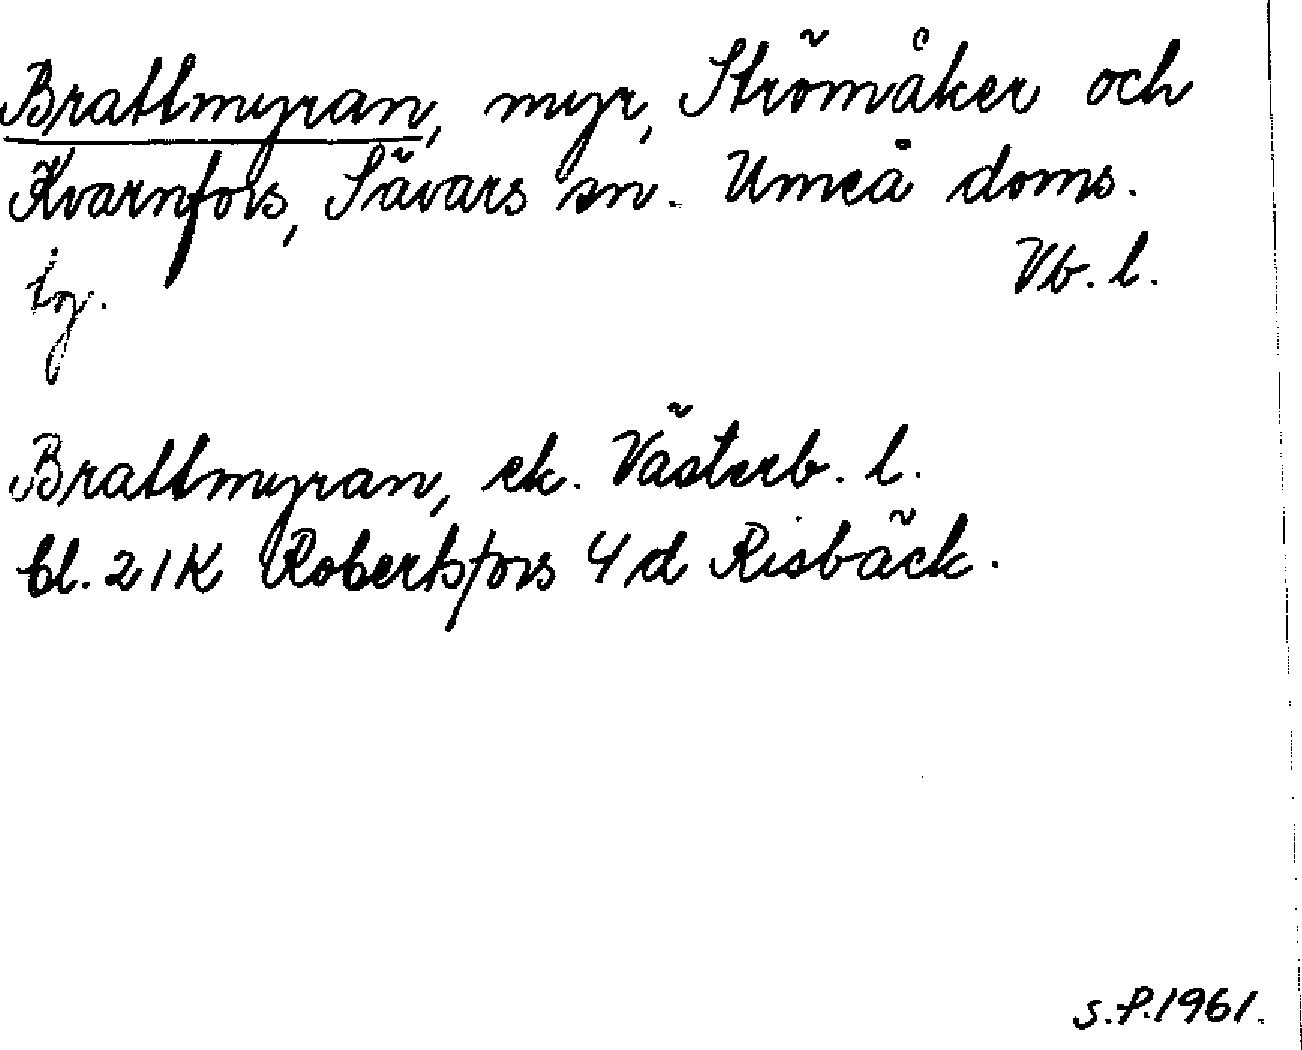 Brattmyran, myr, Strömåker och
Kvarnfors, Sävars sn. Umeå doms.
lg. Vb. l.
Brattmyran, ek. Västerb. l.
bl. 21K Robertsfors 4d Risbäck.
S.P.1961.